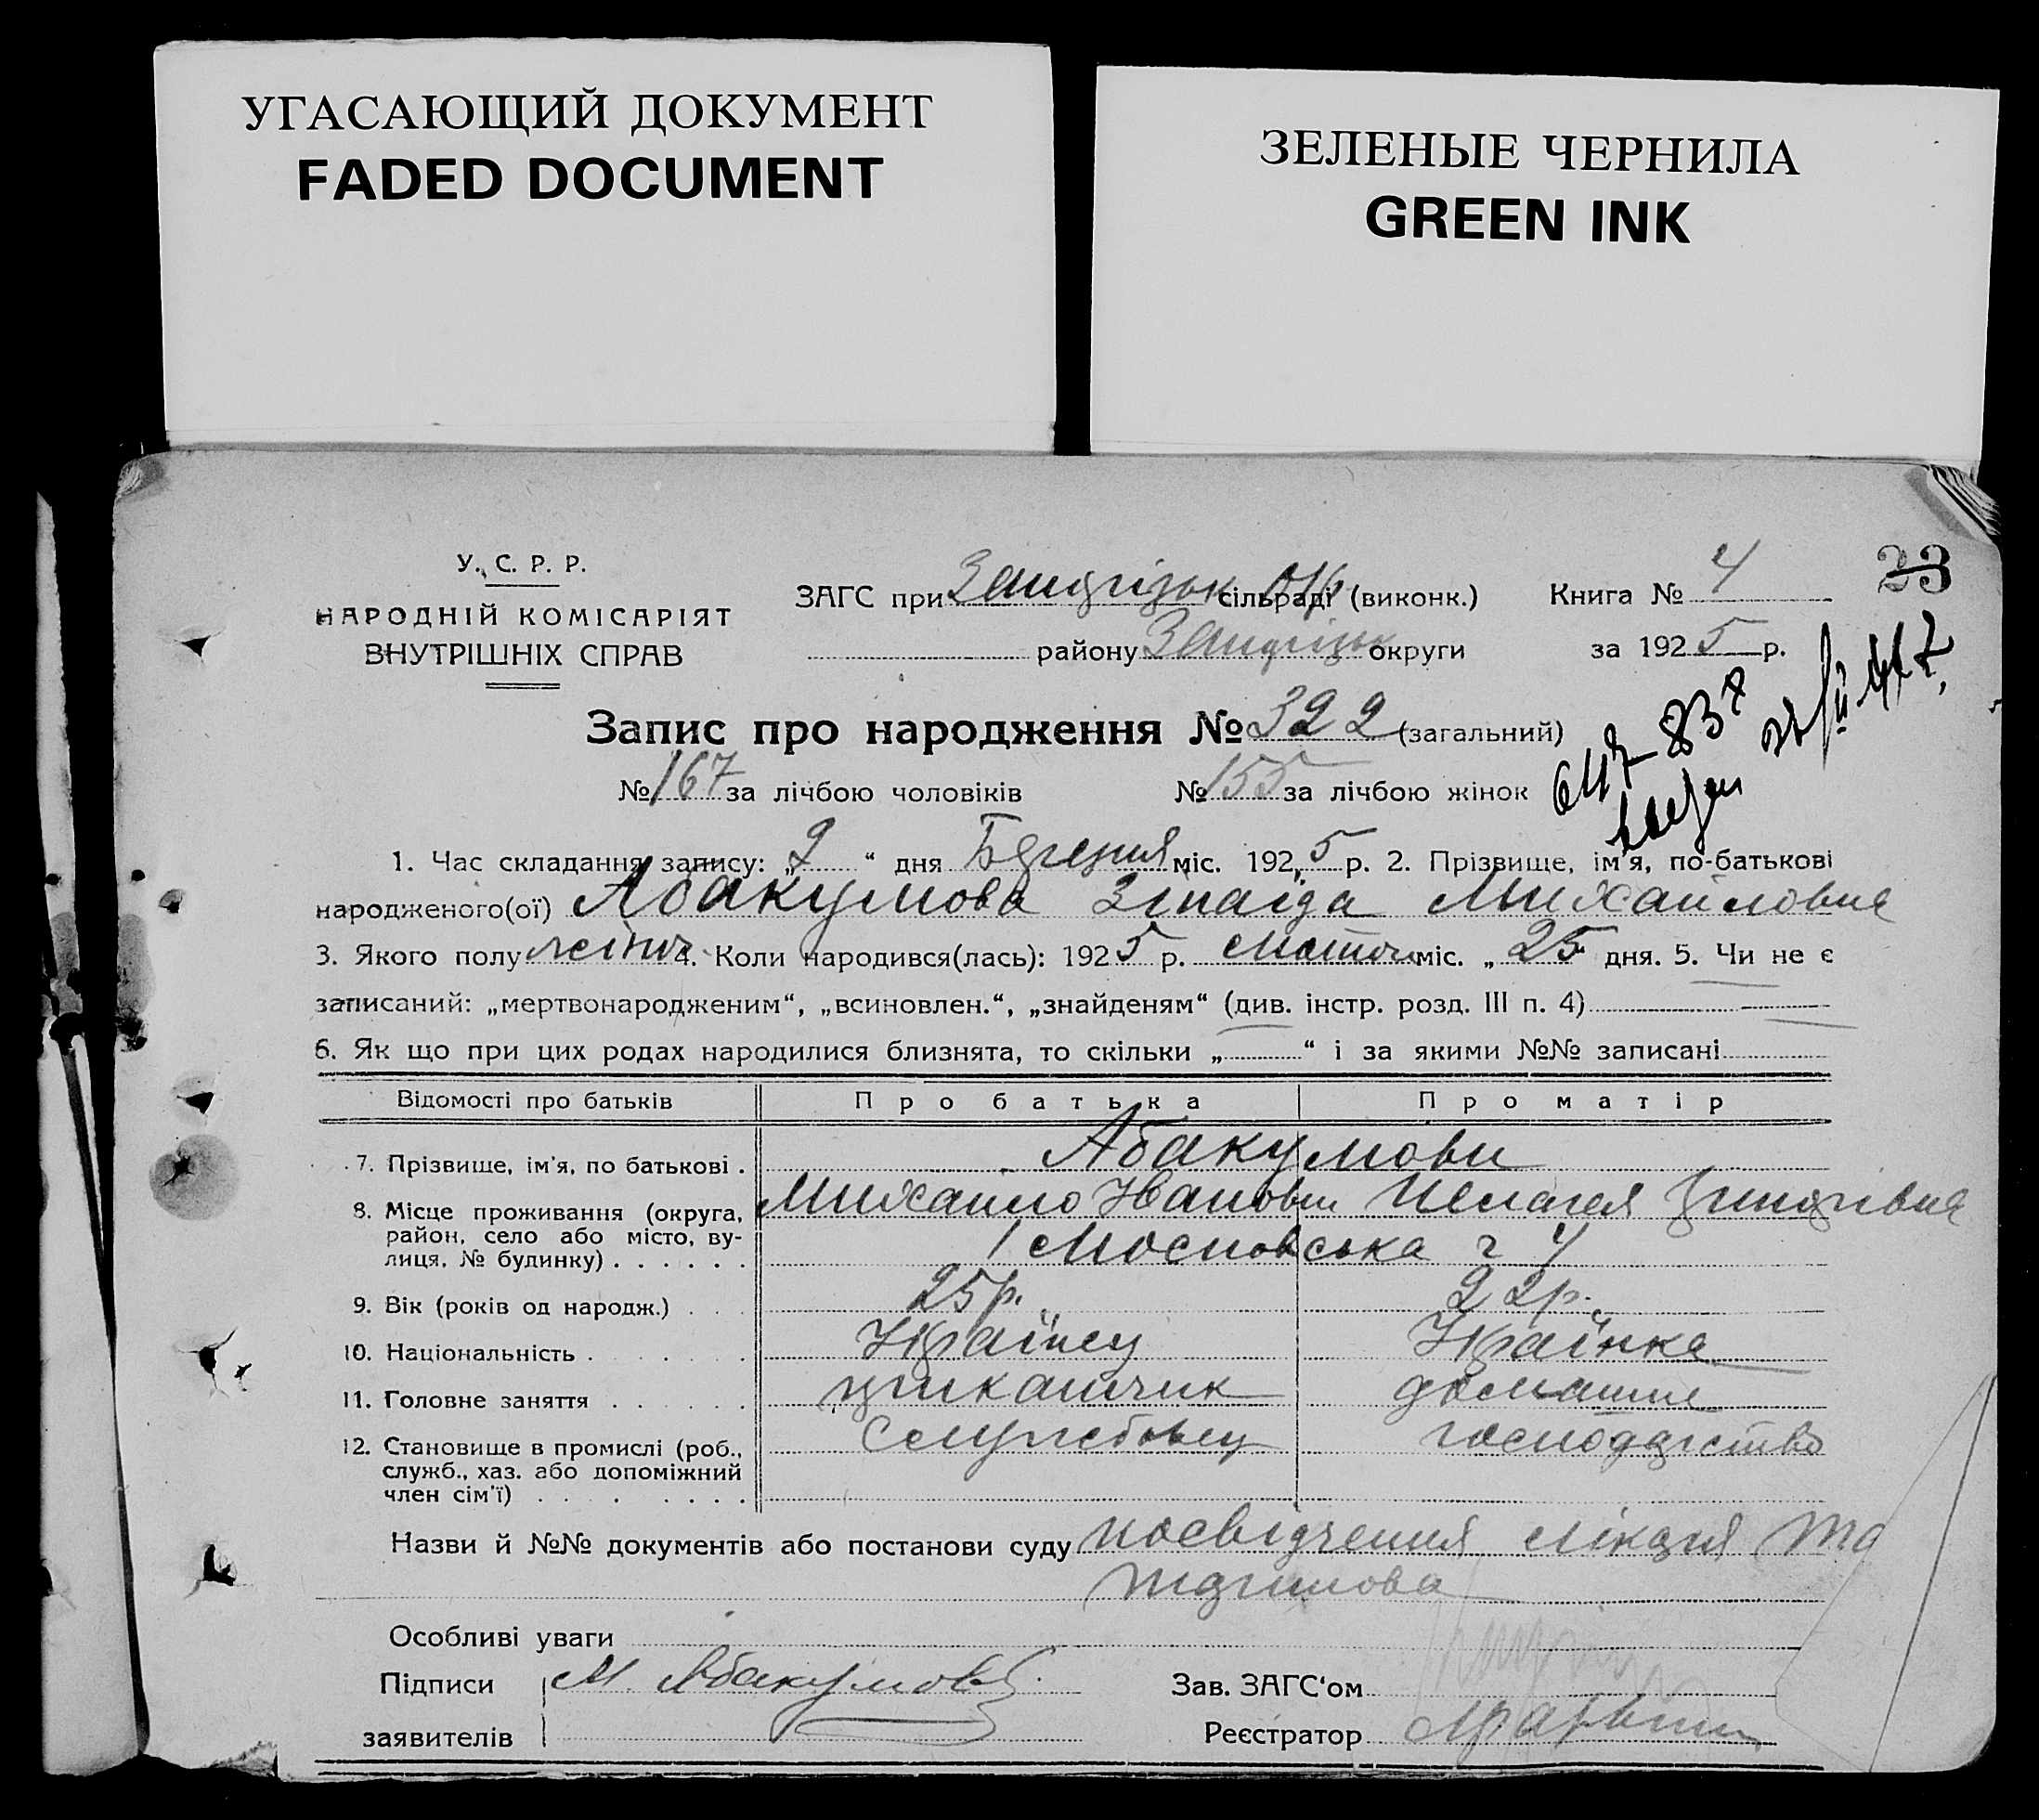 УГАСАЮЩИЙ ДОКУМЕНТ
FADED DOCUMENT
ЗЕЛЕНЫЕ ЧЕРНИЛА
GREEN INK
У. С. Р. Р.
НАРОДНІЙ КОМІСАРІЯТ
ВНУТРІШНІХ СПРАВ
ЗАГС при сільраді (виконк.)
району округи
Книга № 4
за 1925 р.
23
Запис про народження № 322 (загальний)
№ 167 за лічбою чоловіків № 155 за лічбою жінок
1. Час складання запису: „ “ дня Березня міс. 1925 р. 2. Прізвище, ім'я, по-батькові
народженого(ої) Абакумова Зінаіда Михайловна
3. Якого полу 4. Коли народився(лась): 1925 р. міс. „ 25 дня. 5. Чи не є
записаний: „мертвонародженим“, „всиновлен.“, „знайденям“ (див. інстр. розд. III п. 4)
6. Як що при цих родах народилися близнята, то скільки „ “ і за якими №№ записані
Відомості про батьків Про батька Про матір
7. Прізвище, ім'я, по батькові . Абакумови
8. Місце проживання (округа, Михайло Іванович Пелагея
район, село або місто, ву-
лиця, № будинку) . . . . . . Московська ч 4
9. Вік (років од народж.) . . . 25 р. 22 р.
10. Національність . . . . . Украінец Украінка
11. Головне заняття . . . . . . прикащик домашнє
12. Становище в промислі (роб., Службовец господарство
служб., хаз. або допоміжний
член сім'ї) . . . . . . .
Назви й №№ документів або постанови суду посвідчення лікаря та
Особливі уваги
Підписи М. Абакумов
заявителів
Зав. ЗАГС‘ом
Реєстратор